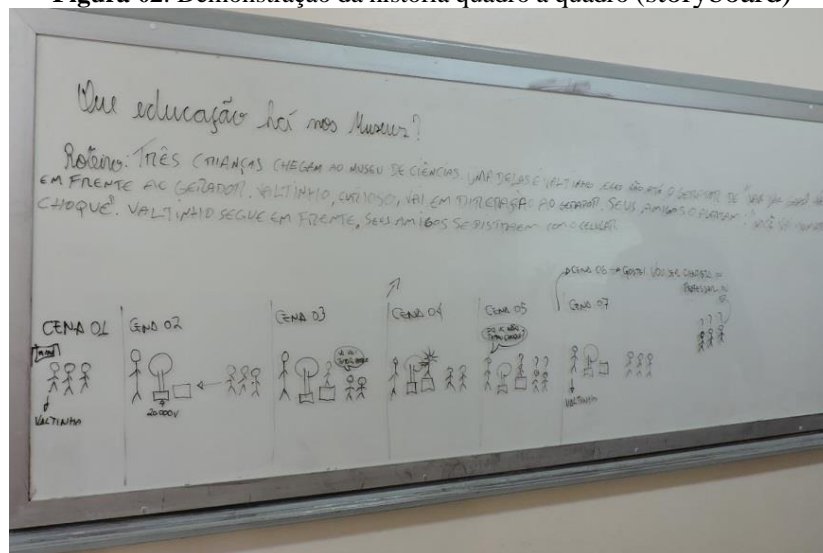 Figura 02: Demonstração da história quadro a quadro (storyboard)
Que educação há nos Museus?
Roteiro: TRÊS CRIANÇAS CHEGAM AO MUSEU DE CIÊNCIAS. UMA DELAS É VALTINHO. ELAS VÃO ATÉ O GERADOR DE "VAN
EM FRENTE AO GERADOR. VALTINHO, CURIOSO, VAI EM DIREÇÃO AO GERADOR. SEUS AMIGOS O "VOCÊ
CHOQUE". VALTINHO SEGUE EM FRENTE, SEUS AMIGOS SE DISTRAEM COM O CELULAR
CENA 06 GOSTEI VOU SER CIENTISTA
PROFESSOR
CENA 01
CENA 02
CENA 03
CENA 04
CENA 05
CENA 07
VALTINHO
20.000V
VALTINHO